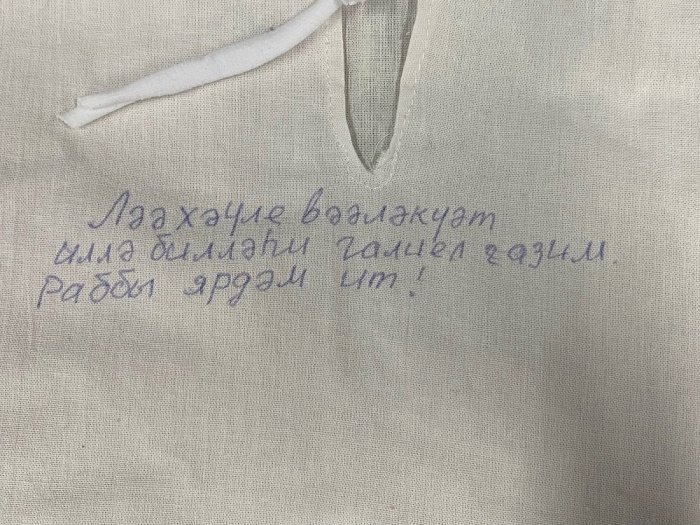 Ләә хәүле вәәләкуәт
илла билләһи галиел газим.
Раббы ярдәм ит!